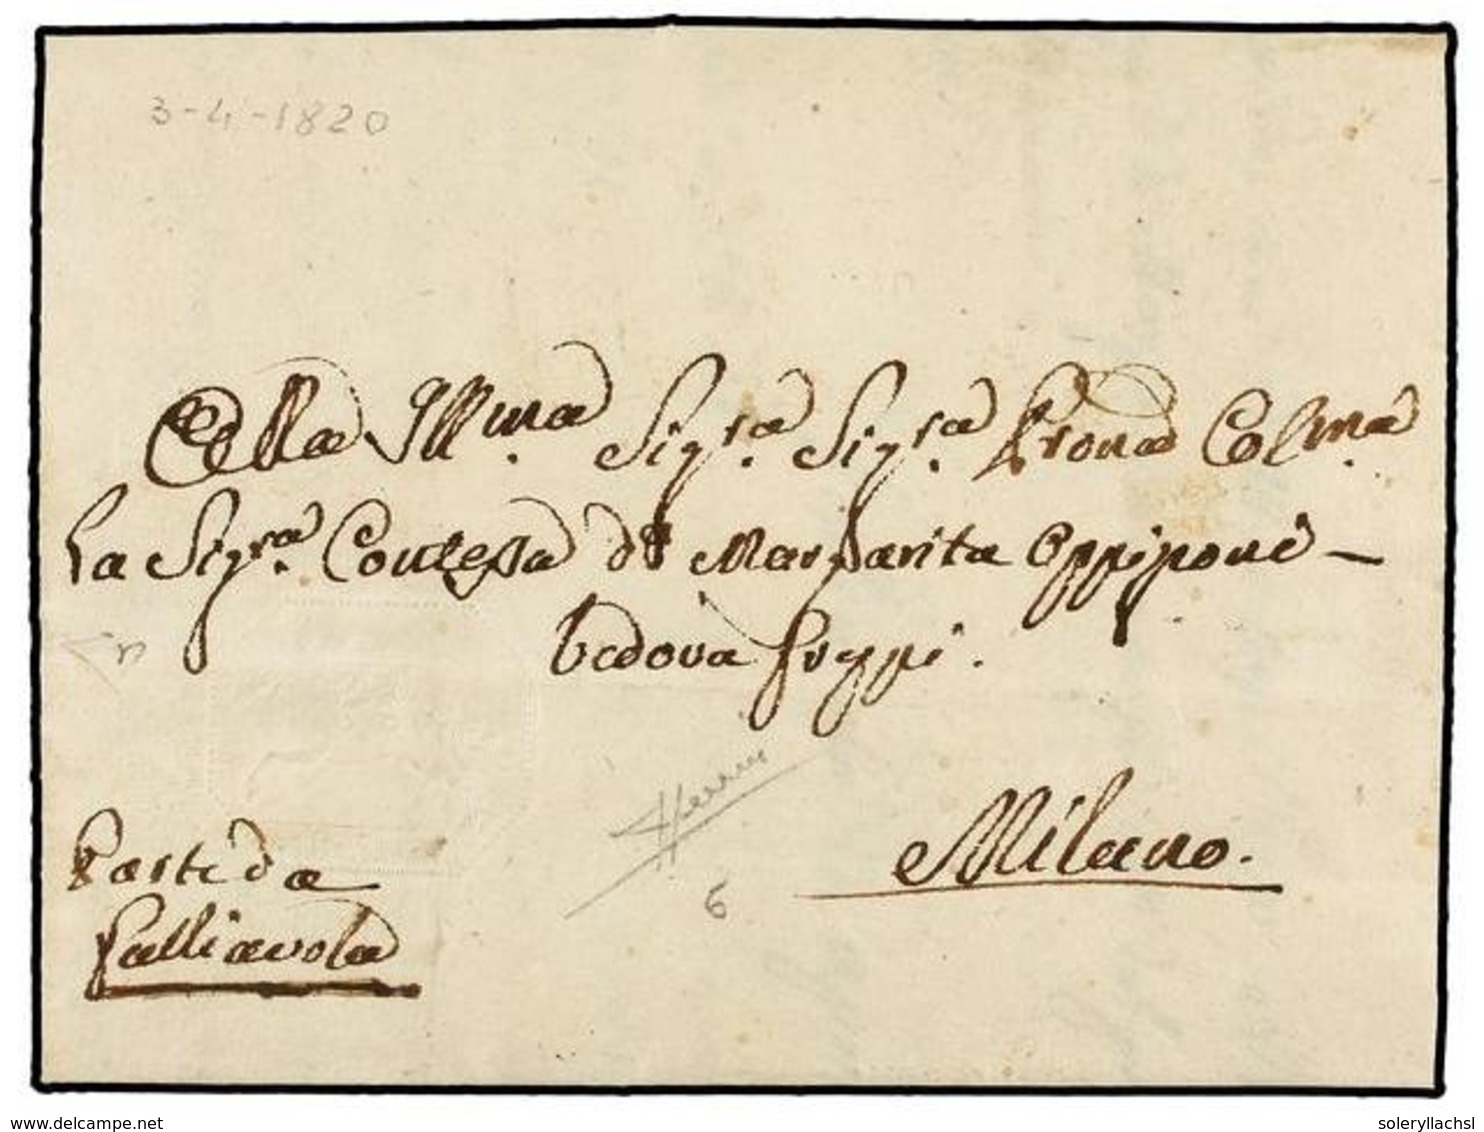 3-4-1820
Alla Illma. Sigra. Sigra. Prona Colma.
La Sigra. Contessa Da Margarita Oppiponi -
Vedova Greppi.
Milano.
Parte da
Galliavola
6
www.delcampe.net
soleryllachsl